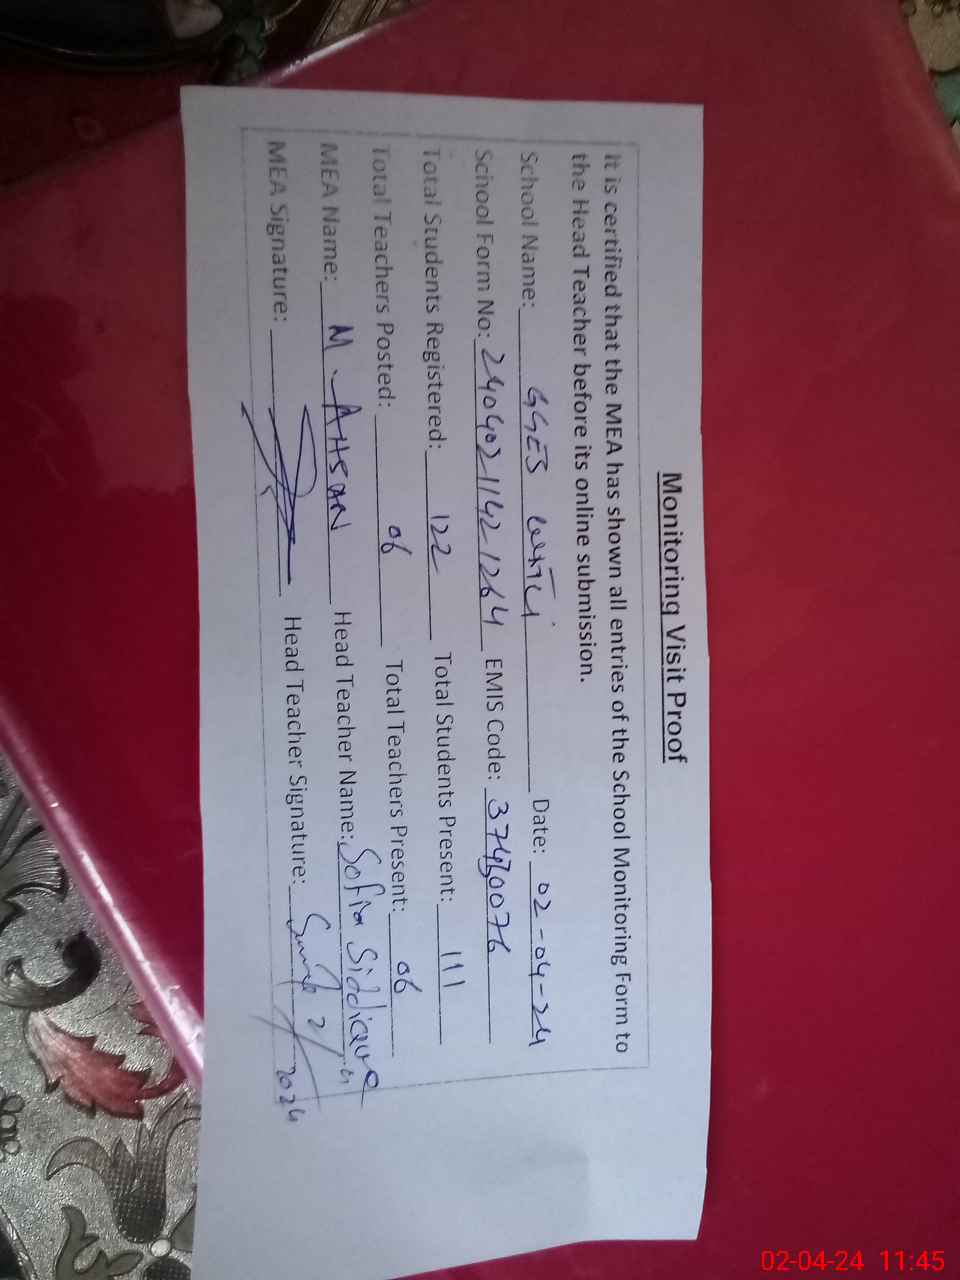 Monitoring Visit Proof
It is certified that the MEA has shown all entries of the School Monitoring Form to
the Head Teacher before its online submission.
School Name: GGES Date: 02-04-24
School Form No: 24040211421264 EMIS Code: 37430076
Total Students Registered: 122 Total Students Present: 111
Total Teachers Posted: 06 Total Teachers Present: 06
MEA Name: M. AHSAN Head Teacher Name: Sofia Siddique
MEA Signature: Head Teacher Signature:
2024
02-04-24 11:45